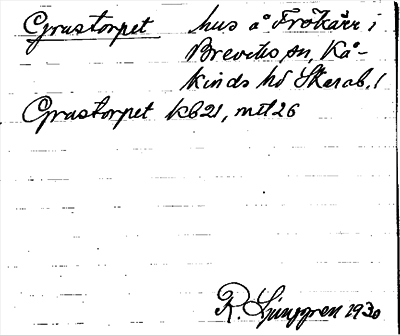 Grustorpet hus å Frökärr i
Breveds sn, Kå-
kinds hd Skarab. l
Grustorpet kb 21, mtl 26
R. Ljunggren 1930